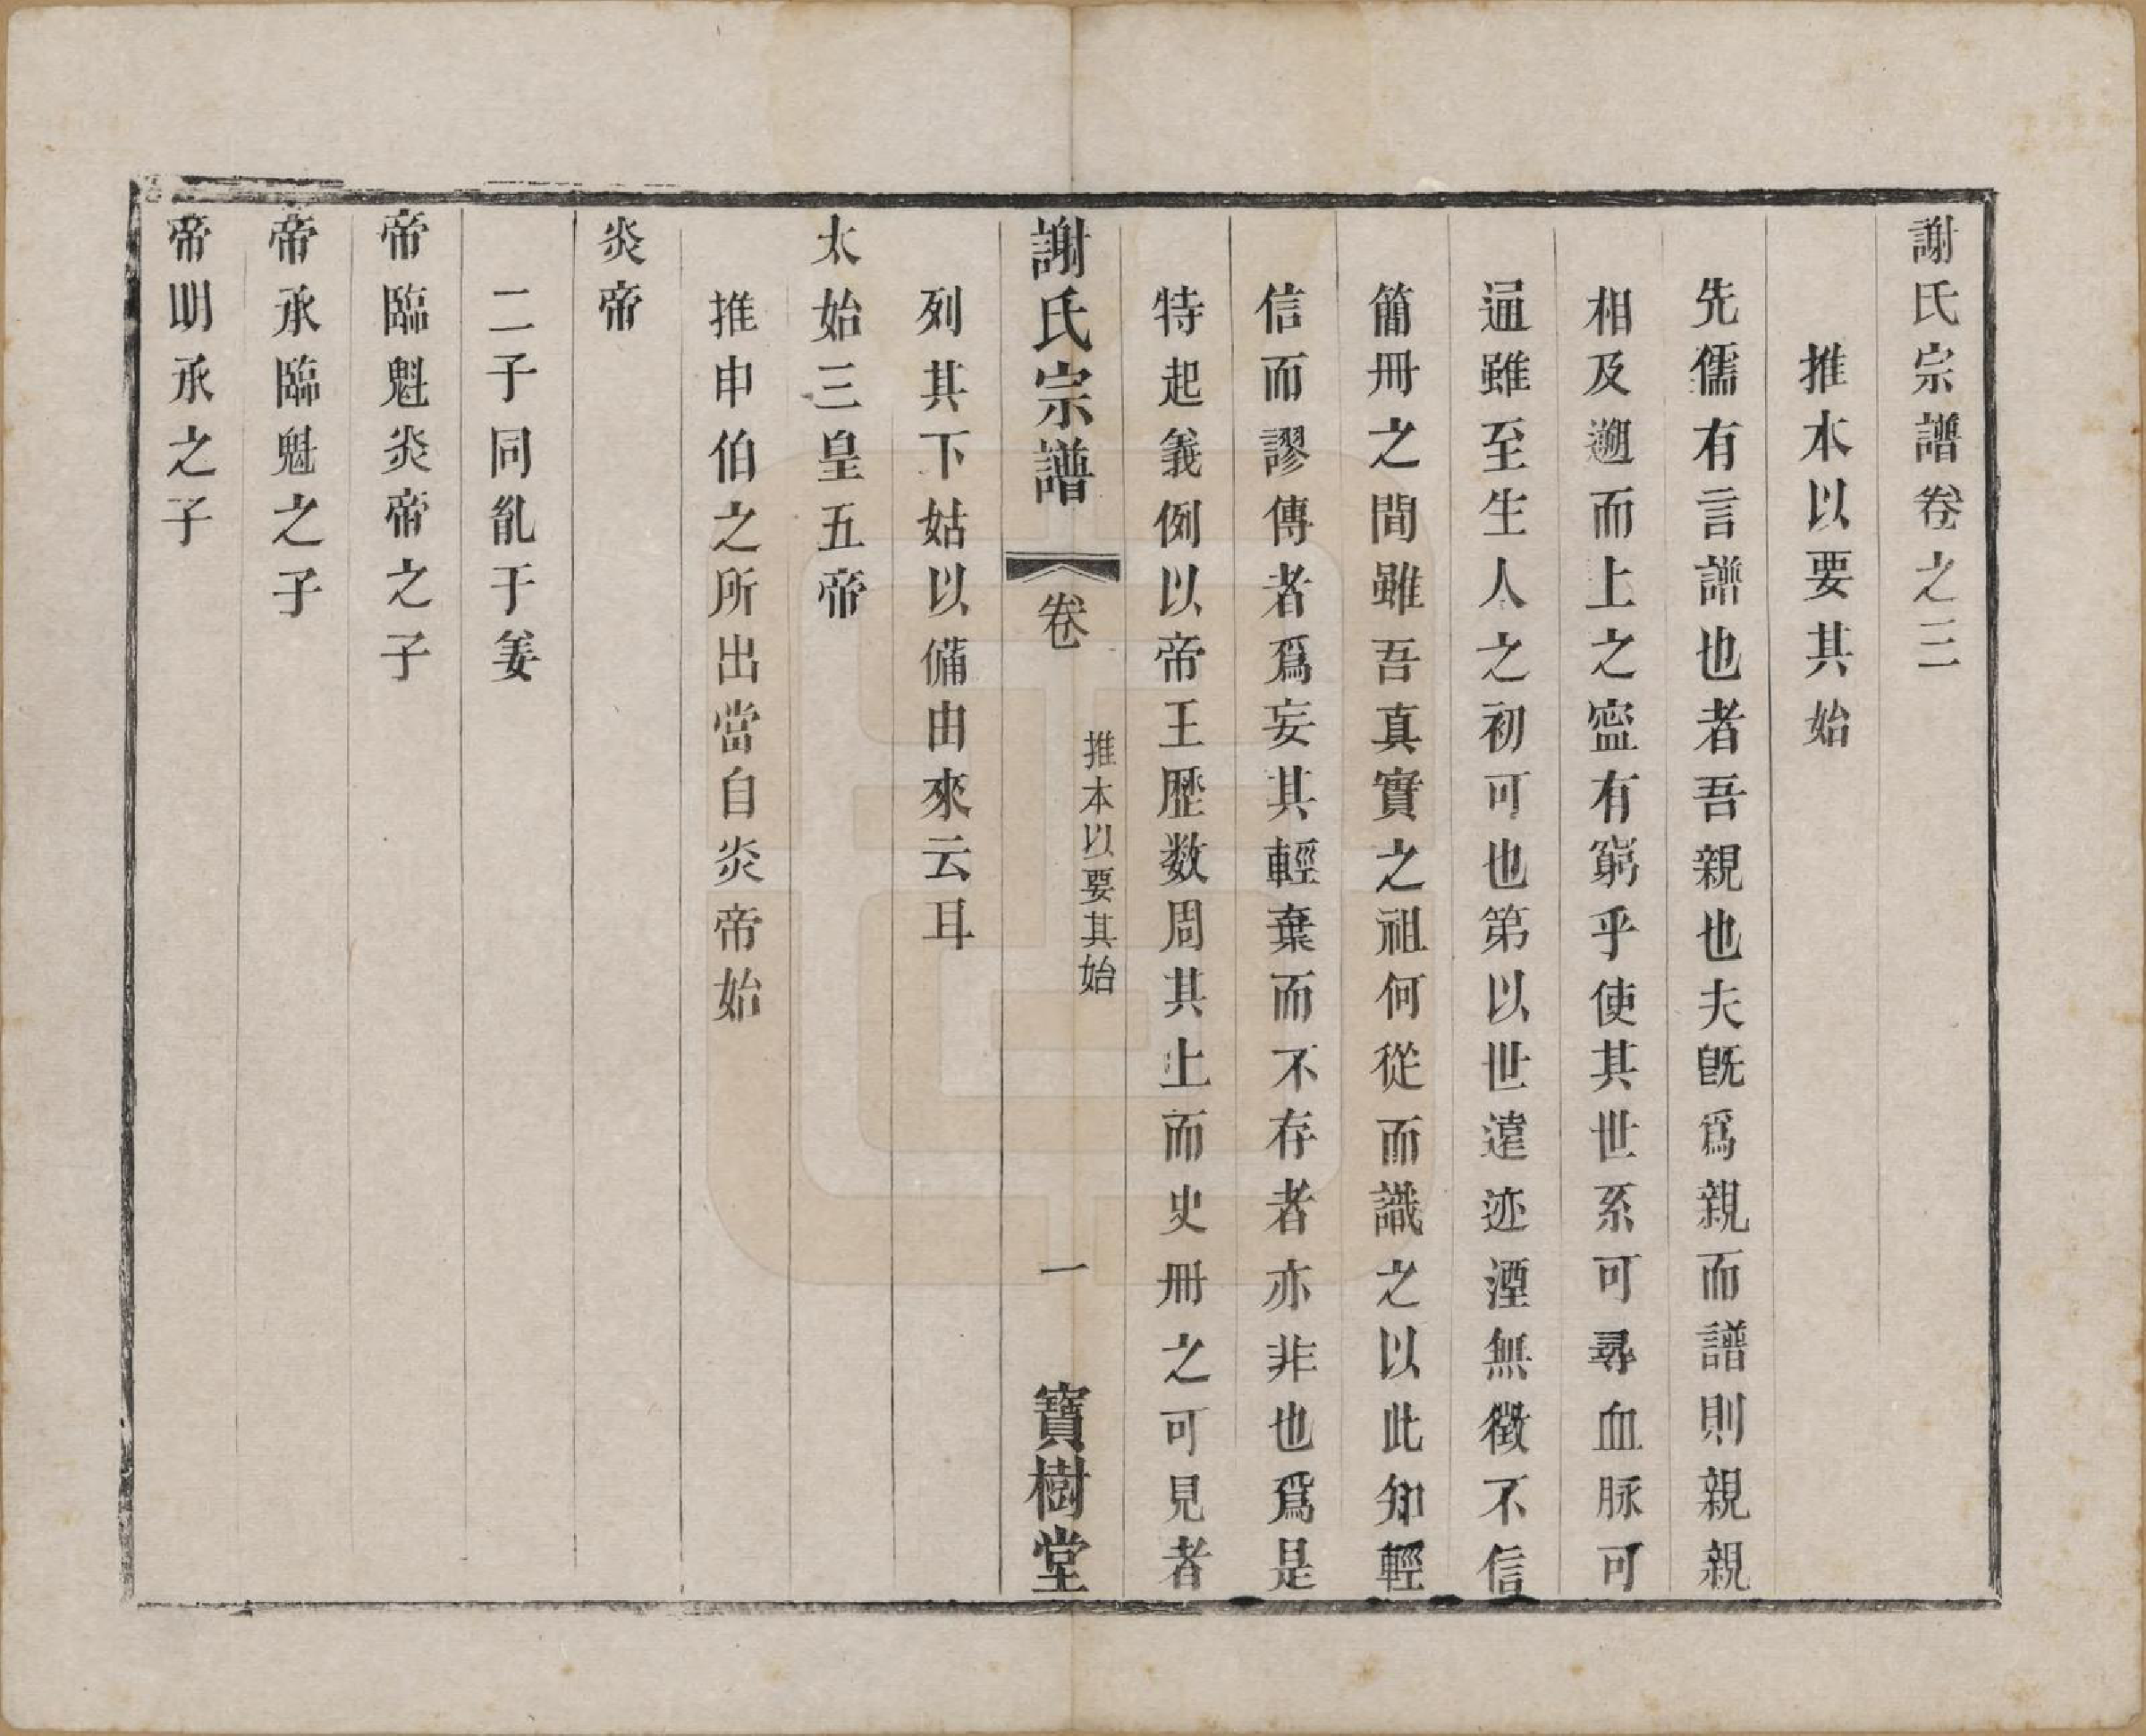 謝氏宗譜卷之三
推本以要其始
先儒有言譜也者吾親也夫旣爲親而譜則親親
相及遡而上之寍有窮乎使其世系可尋血脉可
通雖至生人之初可也第以世遠迹湮無徵不信
簡冊之間雖吾真實之祖何從而識之以此知輕
信而謬傳者爲妄其輕棄而不存者亦非也爲是
特起義例以帝王歷数周其上而史冊之可見者
謝氏宗譜 卷 推本以要其始 一 寶樹堂
列其下姑以備由來云耳
太始三皇五帝
推申伯之所出當自炎帝始
炎帝
二子同胤于姜
帝臨魁炎帝之子
帝承臨魁之子
帝明承之子